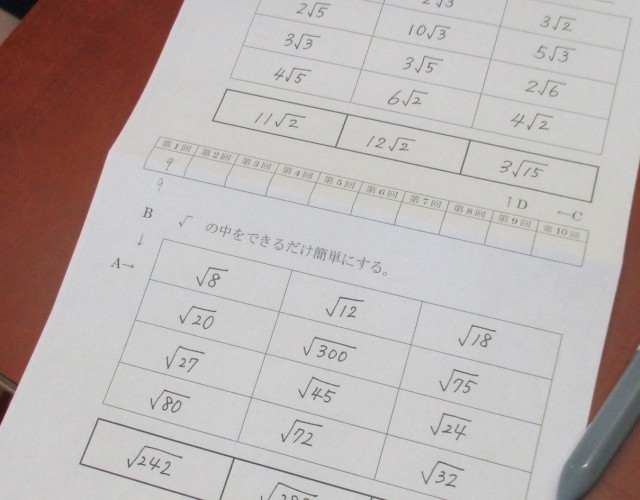 2√5 2√3 3√2
3√3 10√3 5√3
4√5 3√5 2√6
6√2 4√2
11√2 12√2 3√15
第1回 第2回 第3回 第4回 第5回 第6回 第7回 第8回 第9回 第10回
9
9
↑D ←C
B √ の中をできるだけ簡単にする。
↓
A→
√8 √12 √18
√20 √300 √75
√27 √45 √24
√80 √72 √32
√242